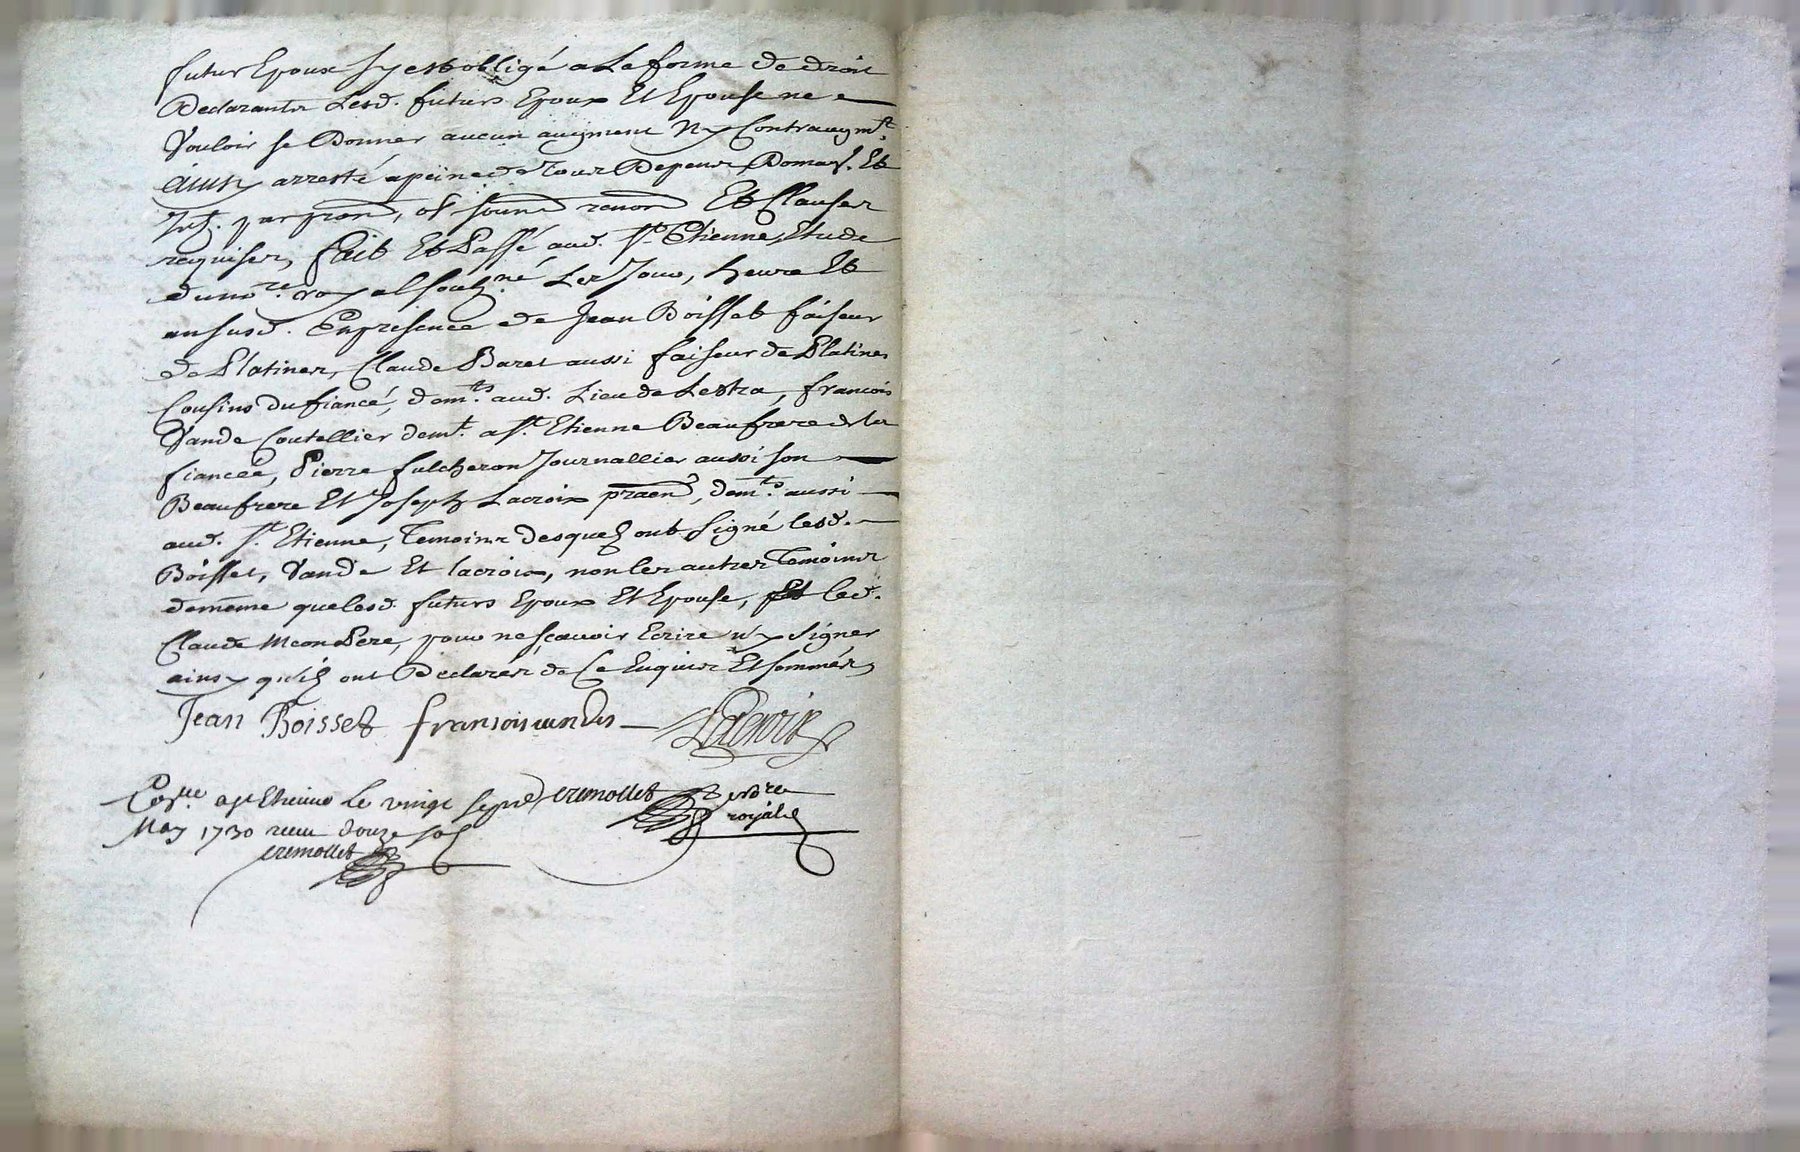 futur Epoux s'y est obligé a La forme de droit
Declarants Lesd. futurs Epoux Et Epouse ne
Vouloir se Donner aucun augment Ny Contraugmt.
Ainsy arresté apeine de tous Depens, Domag. Et
Int. par prom, obl soum renon Et Clauses
requises, fait Et Passé aud. St. Etienne, Etude
du nore. royal soubsné Les Jour, heure Et
an susd. En presence de Jean Boisset faiseur
de Platines, Claude Baret aussi faiseur de Platines
Cousins du fiancé, demts. aud. Lieu de Lestra, francois
Vande Coutellier demt. a St. Etienne Beaufrere de la
fiancée, Pierre fulcheron Journallier aussi son
Beaufrere Et Joseph Lacroix praen, demts. aussi
aud. St. Etienne, Temoins desquels ont signé lesd.
Boisset, Vande Et lacroix, non les autres Temoins
demême que lesd. futurs Epoux Et Epouse, Et led.
Claude Meon Pere, pour ne sçavoir Ecrire ny signer
ainsy quils ont Declarés de Ce Enquis Et sommés
Jean Boisset francois vandes Lacroix
a st Etienne le vingt sept cremollet
May 1730 receu douze sols royal
cremollet